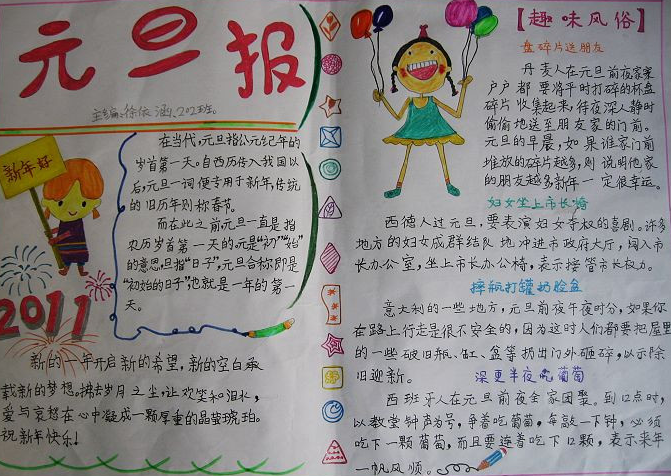 元旦报
主编:徐依涵 202班
新年好
2011
在当代,元旦指公元纪年的
岁首第一天。自西历传入我国以
后,元旦一词便专用于新年,传统
的旧历年则称春节。
而在此之前元旦一直是指
农历岁首第一天的。元是“初”“始”
的意思,旦指“日子”,元旦合称即是
“初始的日子”也就是一年的第一
天。
新的一年开启新的希望,新的空白承
载新的梦想。拂去岁月之尘,让欢笑和泪水,
爱与哀愁在心中凝成一颗厚重的晶莹琥珀。
祝新年快乐!
【趣味风俗】
盘碎片送朋友
丹麦人在元旦前夜家家
户户都要将平时打碎的杯盘
碎片收集起来,待夜深人静时
偷偷地送至朋友家的门前。
元旦的早晨,如果谁家门前
堆放的碎片越多,则说明他家
的朋友越多新年一定很幸运。
妇女坐上市长椅
西德人过元旦,要表演妇女夺权的喜剧。许多
地方的妇女成群结队地冲进市政府大厅,闯入市
长办公室,坐上市长办公椅,表示接管市长权力。
摔瓶打罐扔脸盆
意大利的一些地方,元旦前夜午夜时分,如果你
在路上行走是很不安全的,因为这时人们都要把屋里
的一些破旧瓶、缸、盆等扔出门外砸碎,以示除
旧迎新。
深更半夜吃葡萄
西班牙人在元旦前夜全家团聚。到12点时,
以教堂钟声为号,争着吃葡萄,每敲一下钟,必须
吃下一颗葡萄,而且要连着吃下12颗,表示来年
一帆风顺。